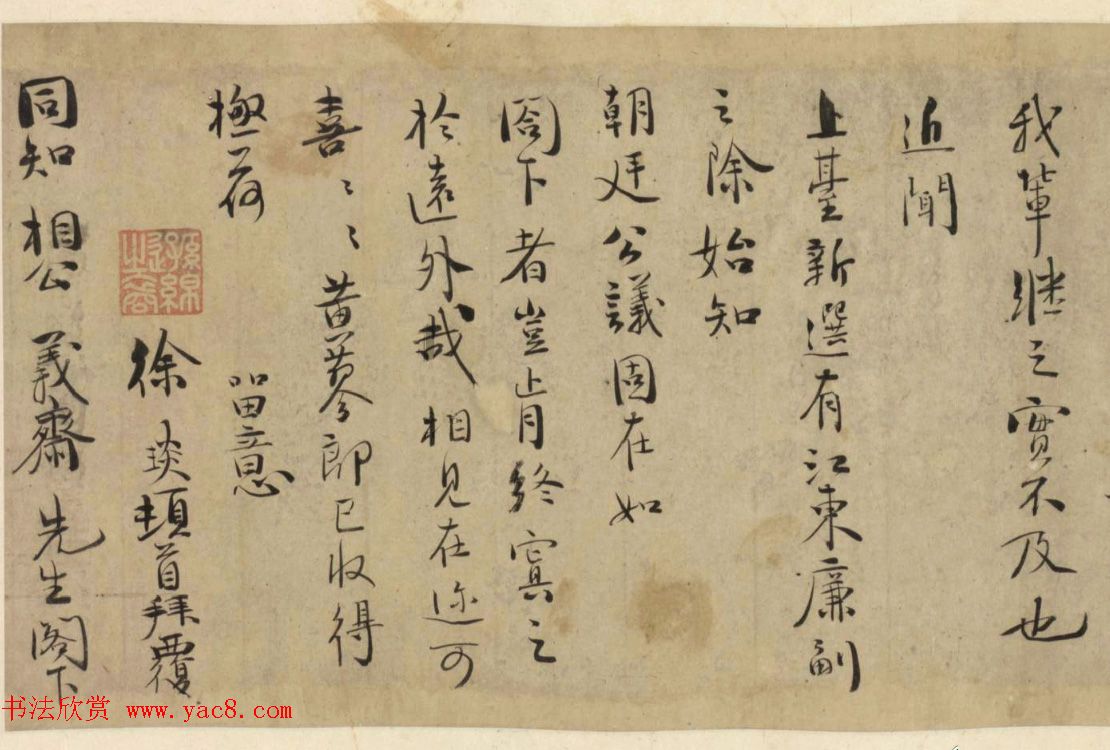 我輩継之實不及也
近聞
上臺新選有江東廉副
之除始知
朝廷公議固在如
閤下者豈肯終寘之
於遠外哉相見在迩可
喜〻〻黄蓡即已收得
極荷
留意
徐琰頓首拜覆
同知相公義齋先生閣下
书法欣赏 www.yac8.com